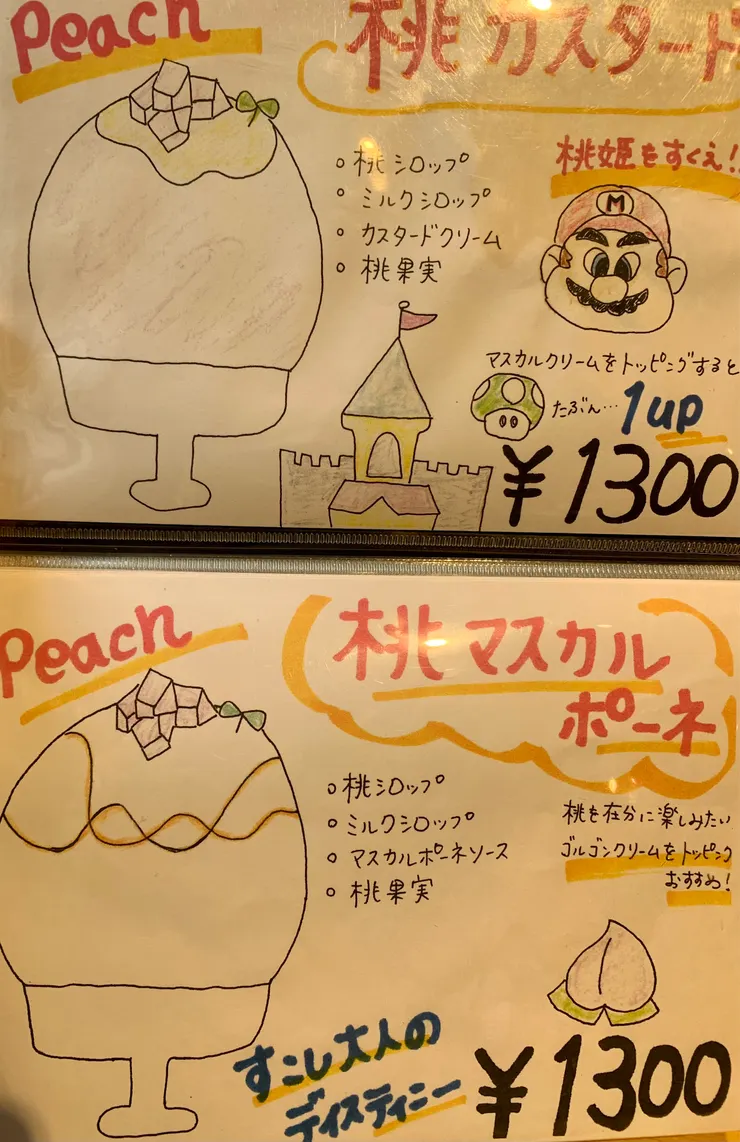 Peach
桃カスタード
・桃シロップ
・ミルクシロップ
・カスタードクリーム
・桃果実
桃姫をすくえ!!
M
マスカルクリームをトッピングすると
たぶん…1up
¥1300
Peach
桃マスカル
ポーネ
・桃シロップ
・ミルクシロップ
・マスカルポーネソース
・桃果実
桃を在分に楽しみたい
ゴルゴンクリームをトッピング
おすすめ!
すこし大人の
ディスティニー
¥1300